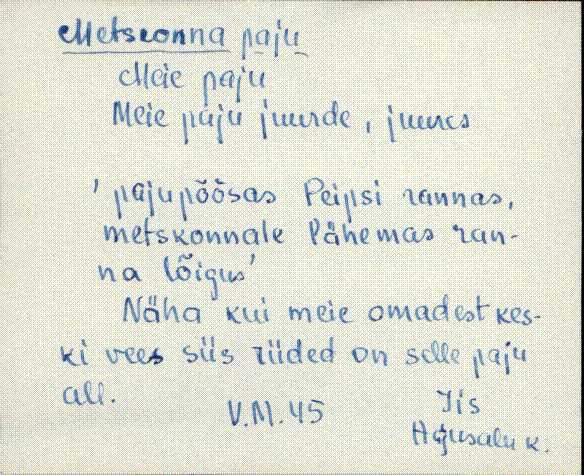 Metskonna paju
Meie paju
Meie paju juurde, juures
'pajupõõsas Peipsi rannas,
metskonnale lähemas ran-
na lõigus'
Näha kui meie omadest kes-
ki vees siis riided on selle paju
all.
V.M. 45
Iis
Agusalu k.